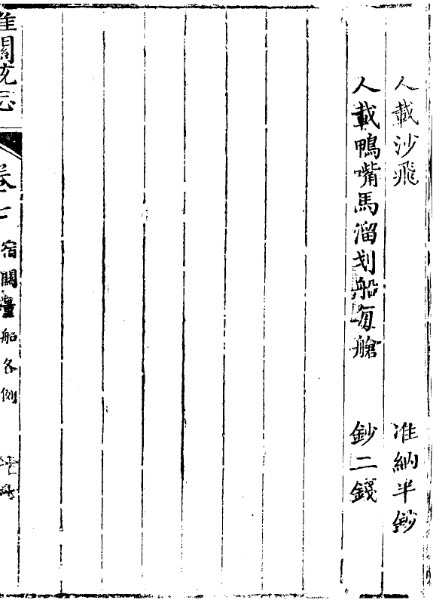 人載沙飛　准納半鈔
人載鴨嘴馬溜划船每艙　鈔二錢
淮關統志
卷七
宿關量船各例